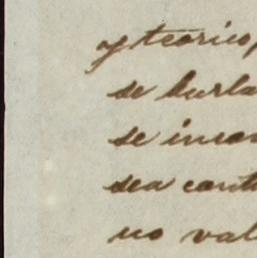 y teorico,
se burla
se incon
sea cont
no val